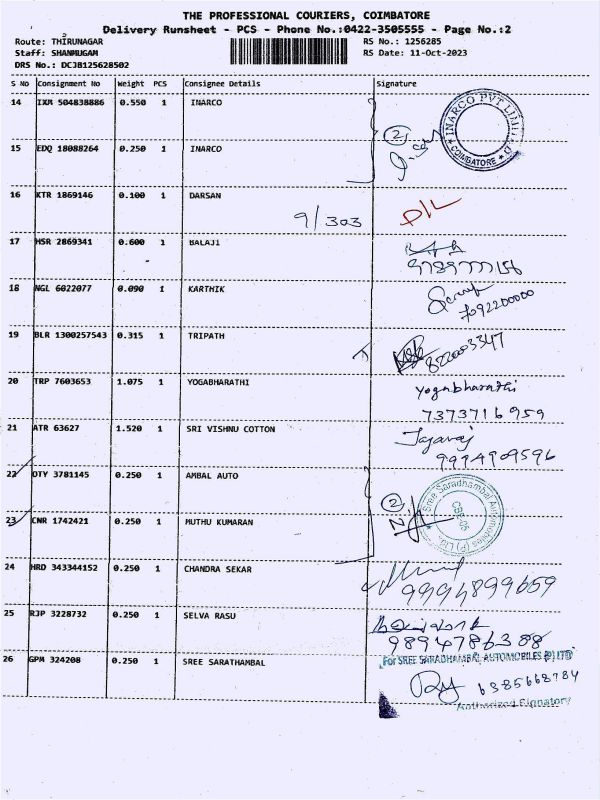 THE PROFESSIONAL COURIERS, COIMBATORE
Delivery Runsheet - PCS - Phone No.:0422-3505555 - Page No.:2
Route: THIRUNAGAR RS No.: 1256285
Staff: SHANMUGAM RS Date: 11-Oct-2023
DRS No.: DCJB125628502
S No Consignment No Weight PCS Consignee Details Signature
14 IXM 504838886 0.550 1 INARCO
INARCO PVT LIMITED
COIMBATORE
2
15 EDQ 18088264 0.250 1 INARCO
16 KTR 1869146 0.100 1 DARSAN
9/303 D/L
17 HSR 2869341 0.600 1 BALAJI
18 NGL 6022077 0.090 1 KARTHIK
7092200000
19 BLR 1300257543 0.315 1 TRIPATH
8220003347
20 TRP 7603653 1.075 1 YOGABHARATHI yogabharathi
7373716959
21 ATR 63627 1.520 1 SRI VISHNU COTTON
9994909596
22 DTY 3781145 0.250 1 AMBAL AUTO
2
Sree Saradhambal Automobiles (P) Ltd.
CBE-06
23 CNR 1742421 0.250 1 MUTHU KUMARAN
24 HRD 343344152 0.250 1 CHANDRA SEKAR
9994899659
25 RJP 3228732 0.250 1 SELVA RASU
9894786388
26 GPM 324208 0.250 1 SREE SARATHAMBAL
For SREE SARADHAMBAL AUTOMOBILES (P) LTD
6385668784
Authorized Signatory